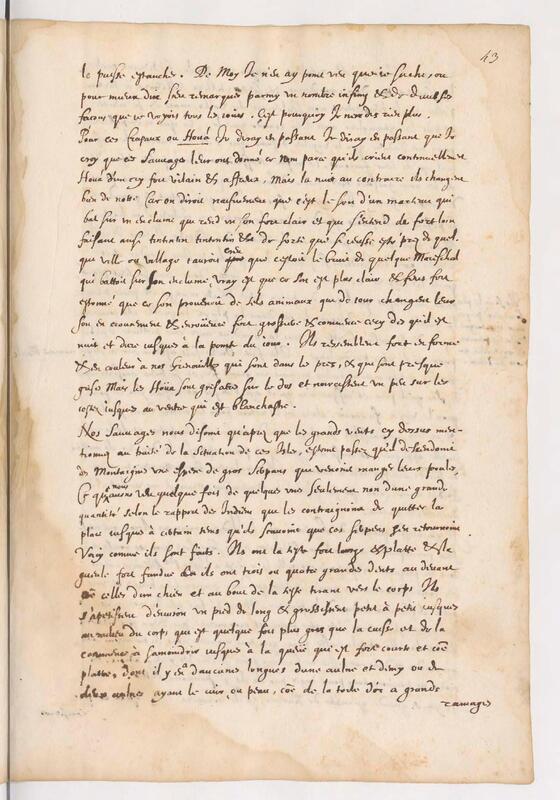 43
le puisse estancher. De Moy Je n'en ay point veu que ie sache, ou
pour mieux dire s'en remarque parmy un nombre infiny & de diverses
facons que ie voyois tous les iours. C'est pourquoy Je n'en dis rien plus.
Pour ces Crapaux ou Houä Je diray en passant Je diray en passant que Je
croy que ces Sauvages leur ont donné ce nom parce qu'ils crient continuellement
Houä d'un cry fort vilain & affreux, Mais la nuit au contraire ils changent
bien de notte Car on diroit naifvement que c'est le son d'un marteau qui
bat sur un enclume qui rend un son fort clair et qui s'entend de fort loin
faisant ainsi tintintin tintintin & de sorte que si i'eusse esté pres de quel-
que ville ou village i'aurois creu que c'estoit le bruit de quelque Mareschal
qui battoit sur son enclume, vray est que ce son est plus clair & fus fort
estonné que ce son provenoit de tels animaux que de iour changent leur
son en & fort & commence cecy des qu'il est
nuit et dure iusques à la pointe du iour. Ils ressemblent fort en forme
& en couleur à nos Grenouilles qui sont dans le pres, & qui sont presque
grise Mais les Houä sont grisatre sur le dos et noircissent un peu sur les
costez iusques au ventre qui est blanchastre.
Nos Sauvages nous disoient qu'apres que les grands vents cy dessus men-
tionnez au traité de la Situation de ces Isles, estoient passez qu'il descendoit
des Montaignes une espece de gros Serpans que venoient manger leurs poules,
Et nous avons veu quelque fois de quelques uns seulement non d'une grande
quantité selon le rapport des Indiens qui les contraignoient de quitter la
place iusques à certain tems qu'ils scavoient que ces serpens s'en retournoient
Voicy comme ils sont faits. Ils ont la teste fort large & platte & la
gueule fort fendue ou ils ont trois ou quatre grandes dents au devant
celles d'un chien et au bout de la teste tirant vers le corps Ils
d'environ un pied de long & grossissent petit à petit iusques
au milieu du corps qui est quelque fois plus gros que la cuisse et de la
commence à s'amoindrir iusques à la queue qui est fort courte et cõe
platte, dont il y en a d'aucunes longues d'une aulne et demy ou de
deux aulnes ayant le cuir, ou peau, cõe de la toile d'or a grands
ramages